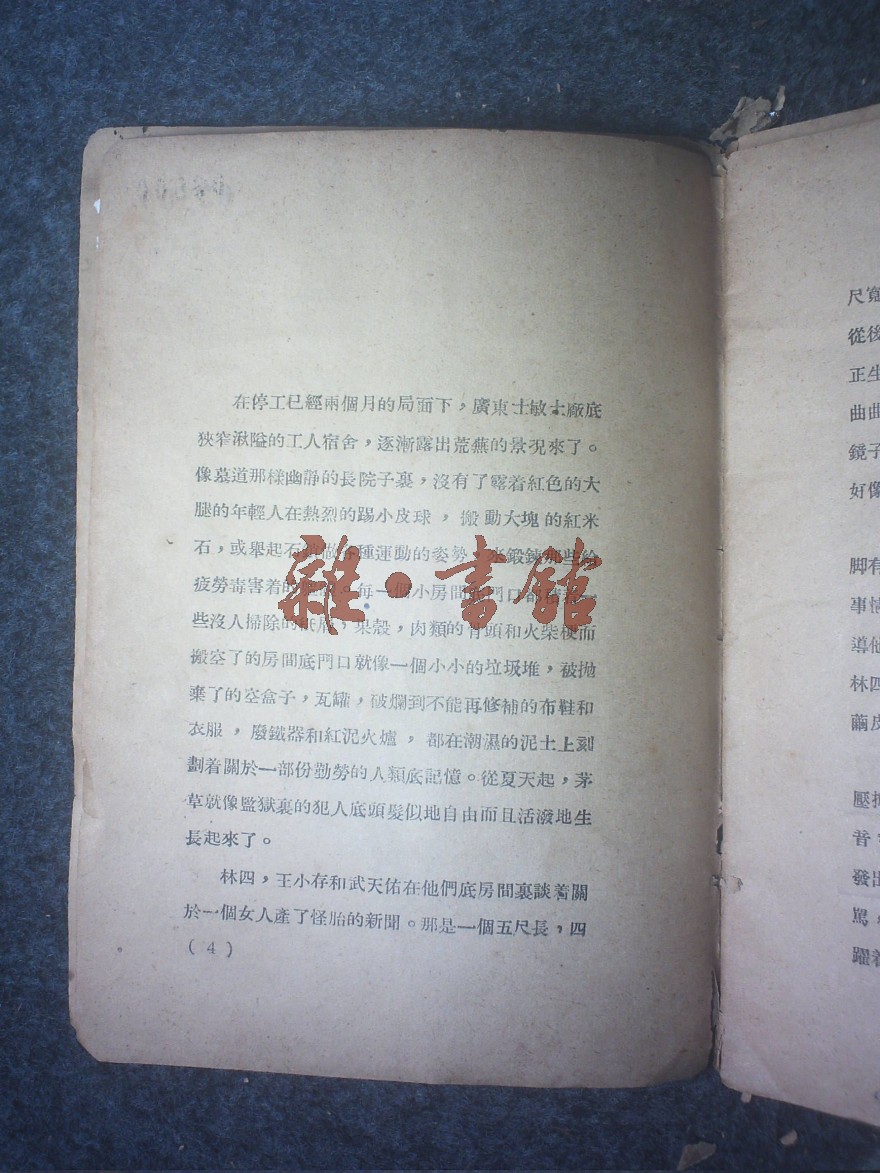 在停工已經兩個月的局面下，廣東士敏土廠底
狹窄湫隘的工人宿舍，逐漸露出荒蕪的景况來了。
像墓道那樣幽静的長院子裏，沒有了露着紅色的大
腿的年輕人在熱烈的踢小皮球，搬動大塊的紅米
石，或舉起石做各種運動的姿勢，來鍛鍊那些給
疲勞毒害着的。每一個小房間底門口都
些沒人掃除的紙屑，果殼，肉類的骨頭和火柴梗而
搬空了的房間底門口就像一個小小的垃圾堆，被拋
棄了的空盒子，瓦罐，破爛到不能再修補的布鞋和
衣服，廢鐵器和紅泥火爐，都在潮濕的泥土上刻
劃着關於一部份勤勞的人類底記憶。從夏天起，茅
草就像監獄裏的犯人底頭髮似地自由而且活潑地生
長起來了。
林四，王小存和武天佑在他們底房間裏談着關
於一個女人產了怪胎的新聞。那是一個五尺長，四
(4)
雜·書館
尺寬
從後
正生
曲曲
鏡子
好像
脚有
事情
導他
林四
繭皮
壓
音
發出
罵
躍着